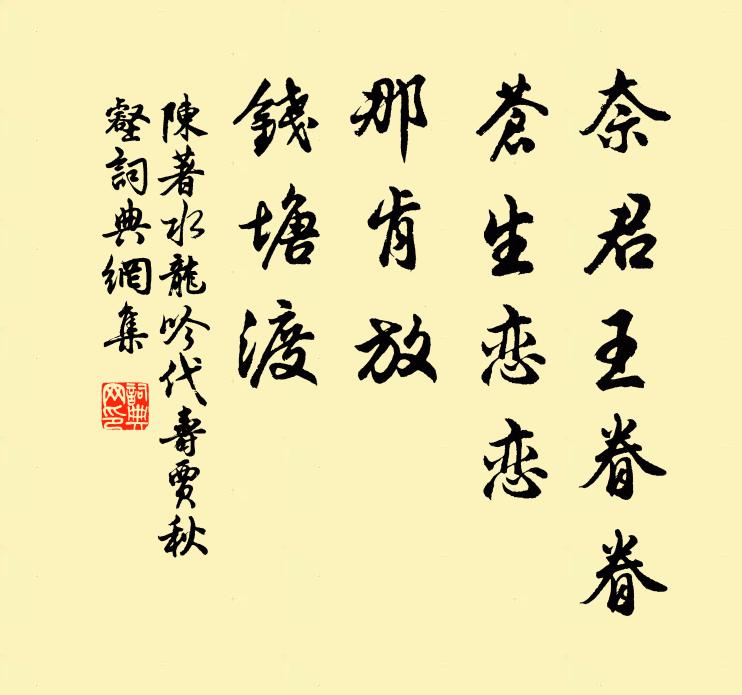 奈君王眷眷
蒼生恋恋
那肯放
錢塘渡
陳著水龍吟代壽賈秋
壑詞典網集
詞典
网印